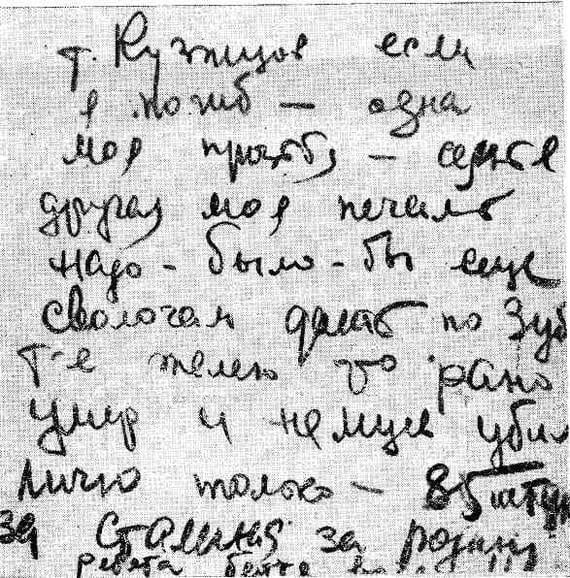 т. Кузнецов если
я погиб — одна
моя просьба — семье
другая моя печаль
надо-было-бы еще
сволочам дать по Зуб
т-е жалею что рано
умер и немцев убил
лично только — 85 штук
за Сталина за родину
ребята бейте